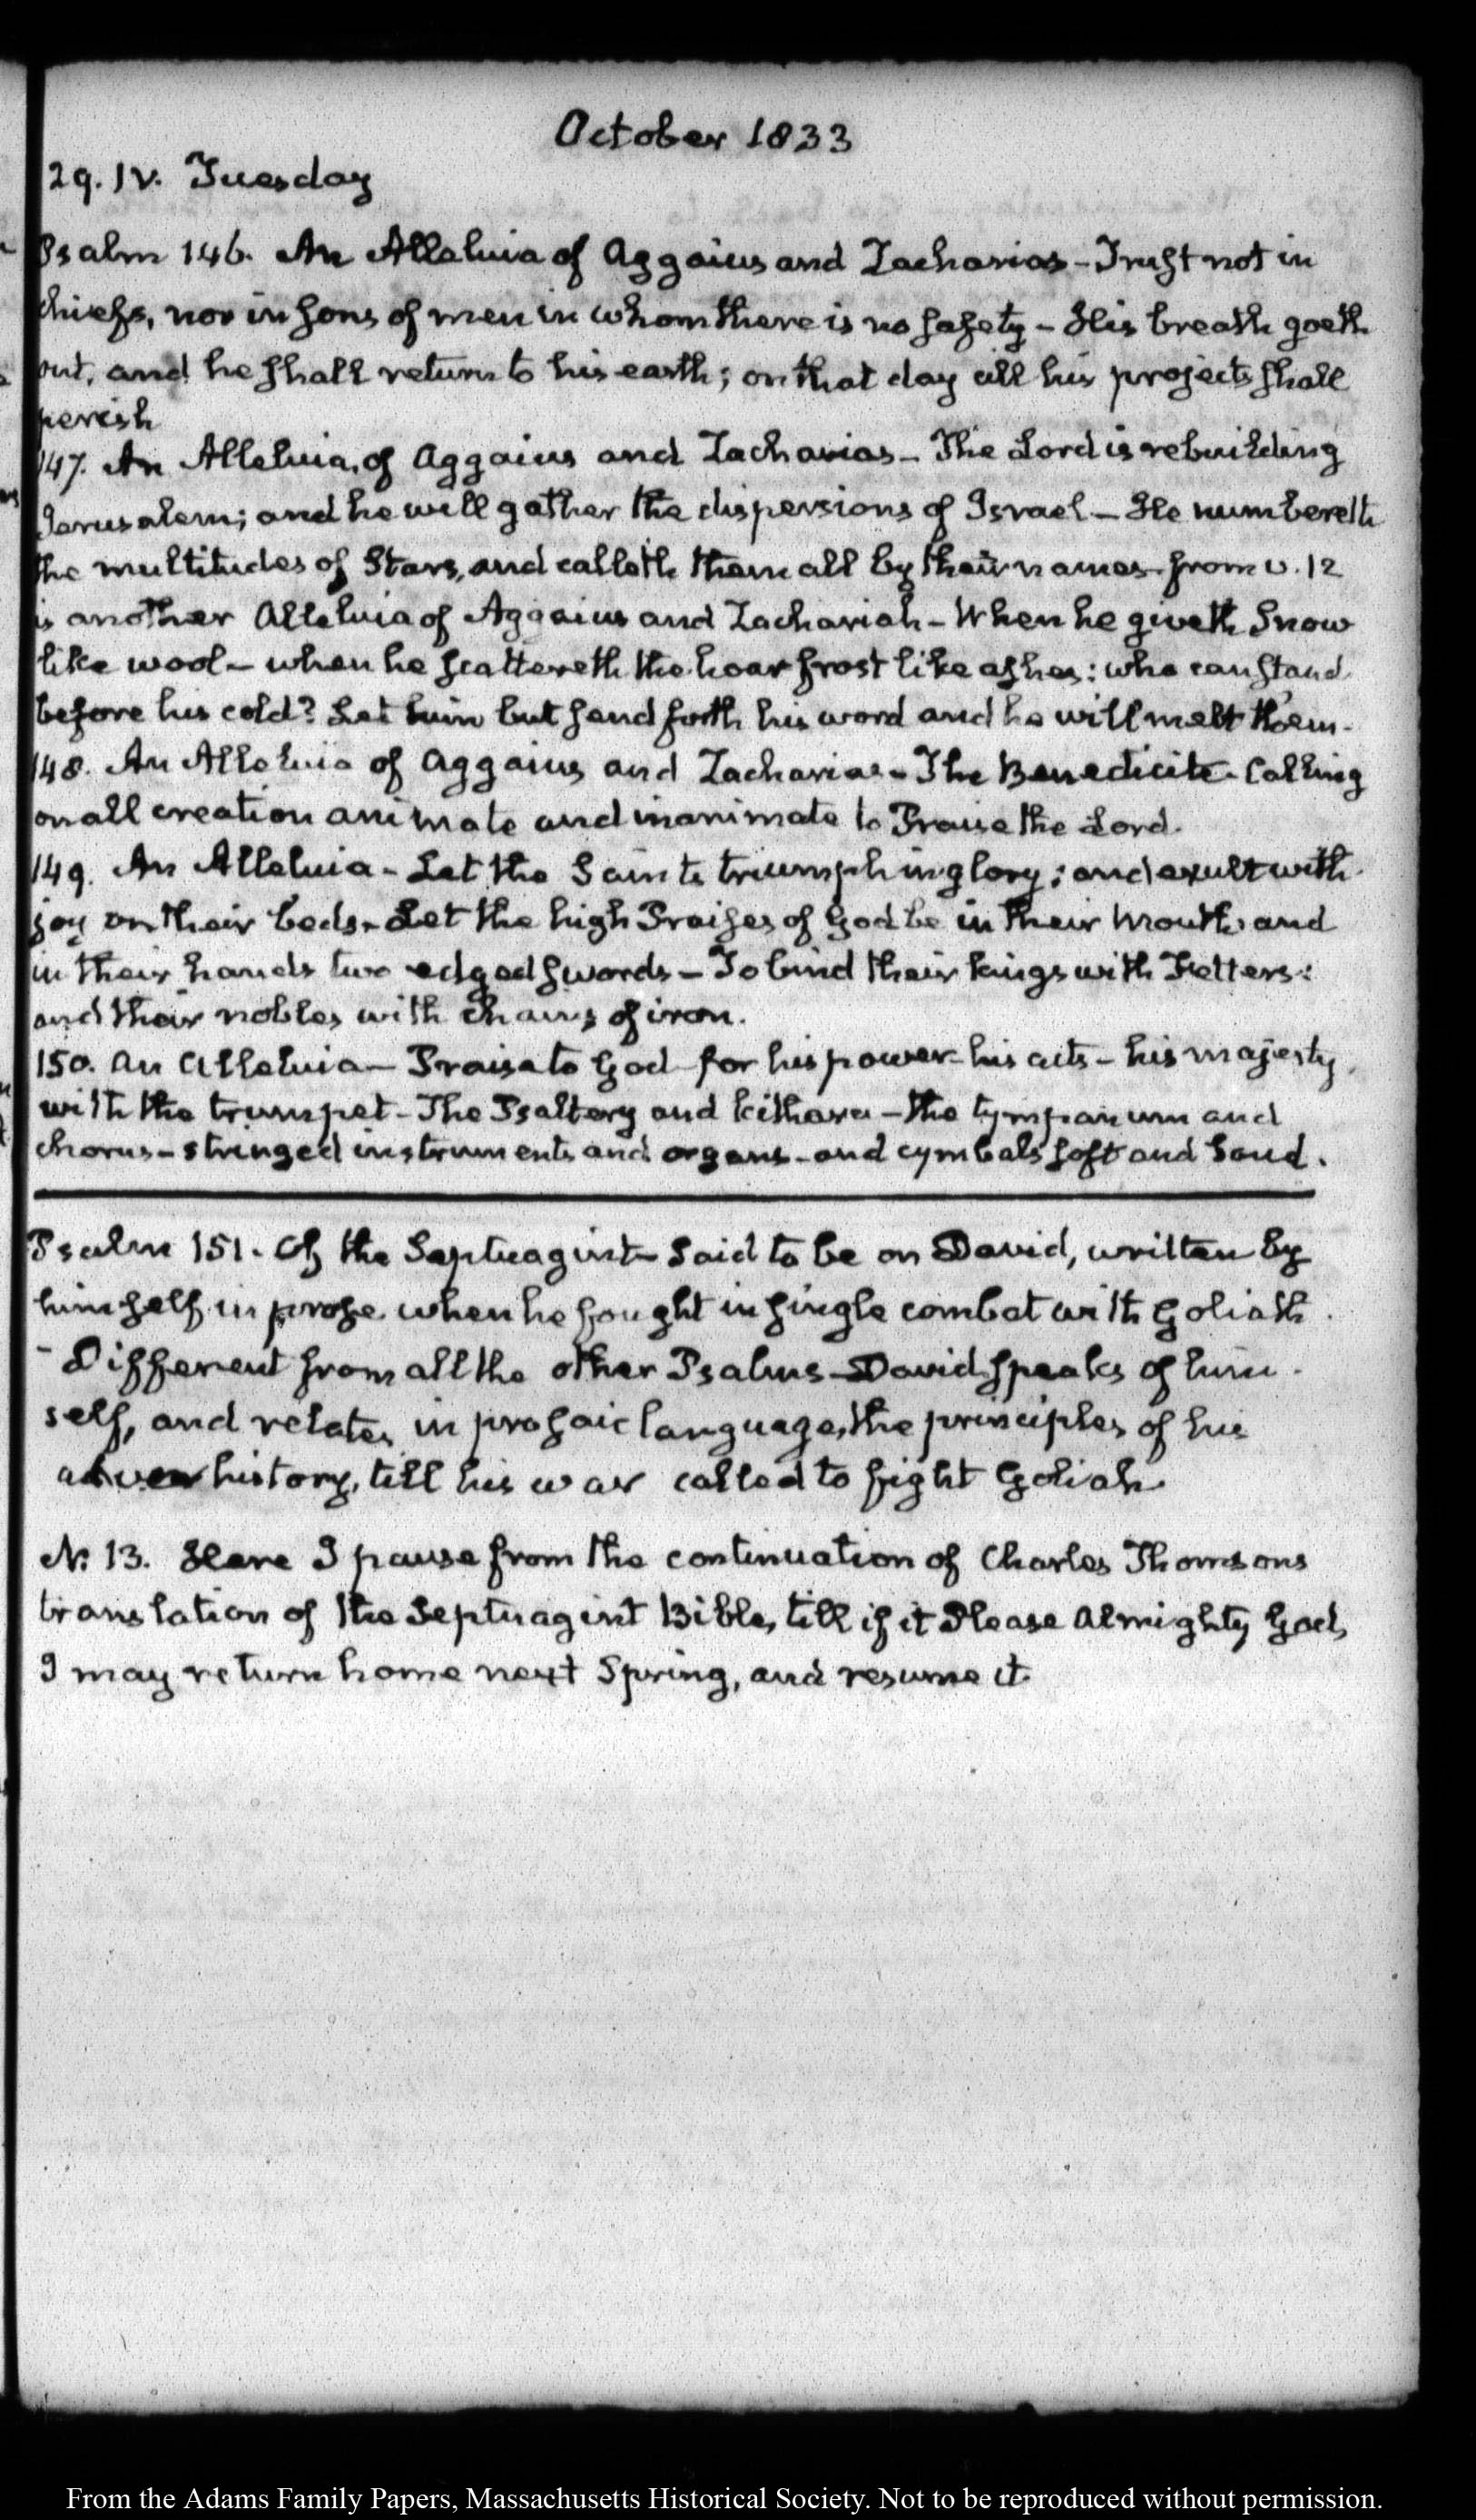 October 1833
29. IV. Tuesday
Psalm 146. An Alleluia of Aggaius and Zacharias - Trust not in
chiefs, nor in sons of men in whom there is no safety - His breath goeth
out, and he shall return to his earth; on that day all his projects shall
perish
147. An Alleluia, of Aggaius and Zacharias - The Lord is rebuilding
Jerusalem; and he will gather the dispersions of Israel - He numbereth
the multitudes of Stars, and calleth them all by their names. from v. 12
is another Alleluia of Aggaius and Zachariah - When he giveth Snow
like wool - when he scattereth the hoar frost like ashes: who can stand
before his cold? Let him but send forth his word and he will melt them.
148. An Alleluia of Aggaius and Zacharias - The Benedicite - Calling
on all creation animate and inanimate to Praise the Lord.
149. An Alleluia - Let the Saints triumph in glory; and exult with
joy on their beds - Let the high Praises of God be in their Mouths and
in their hands two edged swords - To bind their kings with Fetters:
and their nobles with chains of iron.
150. An Alleluia - Praise to God for his power - his acts - his majesty,
with the trumpet - The Psaltery and kithara - the tympanum and
chorus - stringed instruments and organs - and cymbals soft and loud.
Psalm 151. Of the Septuagint - Said to be on David, written by
himself in prose when he fought in single combat with Goliath.
- Different from all the other Psalms - David speaks of him-
self, and relates in prosaic language, the principles of his
history, till his war called to fight Goliah.
N. 13. Here I pause from the continuation of Charles Thomsons
translation of the Septuagint Bible, till if it Please Almighty God,
I may return home next Spring, and resume it
From the Adams Family Papers, Massachusetts Historical Society. Not to be reproduced without permission.